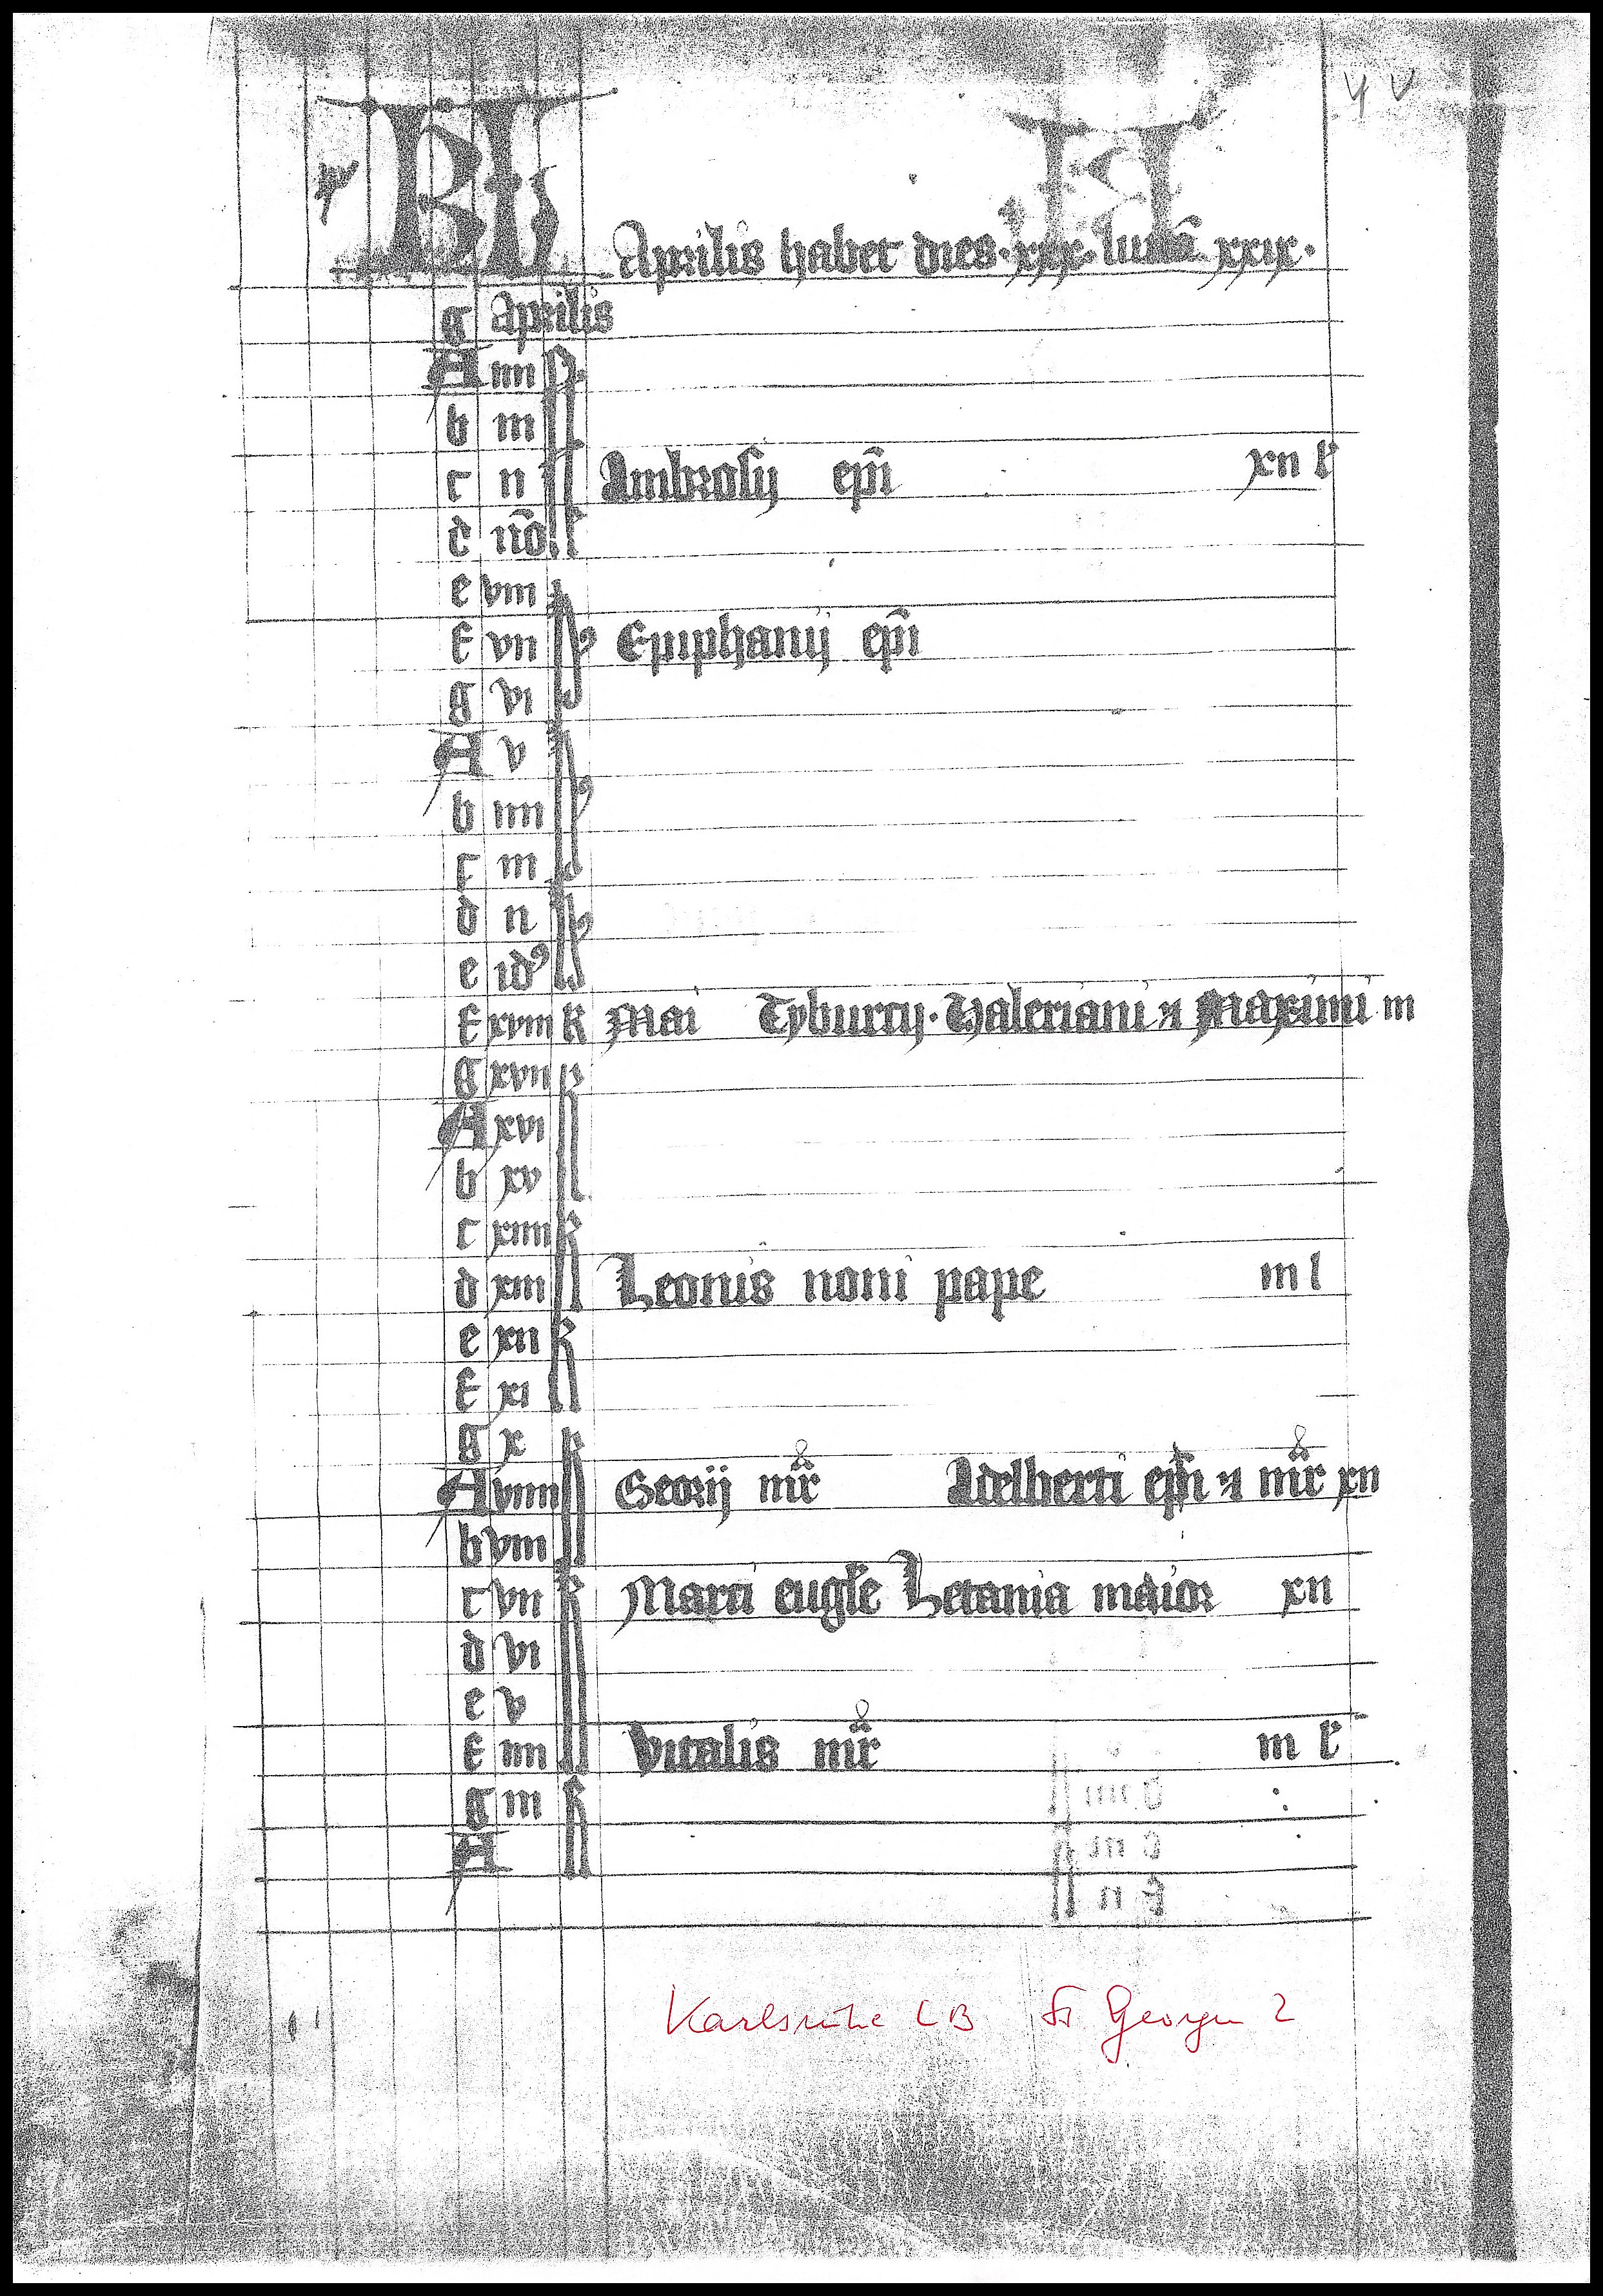 4 v
KL Aprilis habet dies · xxx · lunã xxix ·
g Aprilis
A iiii N
b iii
c ii Ambrosij ep̃i xii l
d nõ
e viii
f vii Epiphanij ep̃i
g vi
A v
b iiii
c iii
d ii
e idꝰ
f xviii k Mai Tyburcij · Valeriani ⁊ Maximi iii
g xvii k
A xvi
b xv
c xiiii k
d xiii Leonis noni pape iii l
e xii k
f xi
g x k
A viiii Georij mr̃ Adelberti ep̃i ⁊ mr̃ xii
b viii
c vii k Marci eugl̃e Letania maior xii
d vi
e v
f iiii Vitalis mr̃ iii l
g iii k
A
Karlsruhe LB St Georgen 2